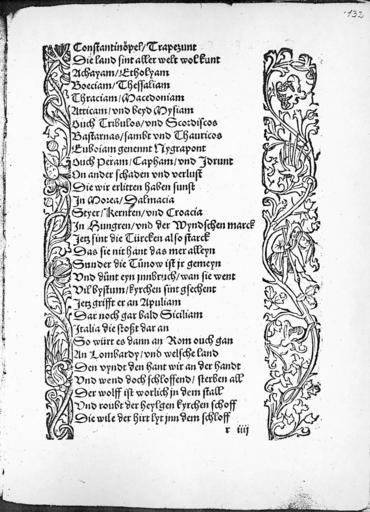 132
Constantinopel/Trapezunt
Die land sint aller welt wol kunt
Achayam/Etholyam
Boeciam/Thessaliam
Thraciam/Macedoniam
Atticam/vnd beyd Mysiam
Ouch Tribulos/vnd Scordiscos
Bastarnas/sambt vnd Thauricos
Euboiam genennt Nygrapont
Ouch Peram/Capham/vnd Jdrunt
On ander schaden vnd verlust
Die wir erlitten haben sunst
Jn Morea/Dalmacia
Steyer/Kernten/vnd Croacia
Jn Hungren/vnd der Wyndschen marck
Jetz sint die Türcken also starck
Das sie nit hant das mer alleyn
Sunder die Tůnow ist jr gemeyn
Vnd důnt eyn jnnbruch/wan sie went
Vil bystum/kyrchen sint gsechent
Jetz grifft er an Apuliam
Dar noch gar bald Siciliam
Jtalia die stoßt dar an
So würt es dann an Rom ouch gan
An Lombardy/vnd welsche land
Den vyndt den hant wir an der handt
Vnd wend doch schloffend/sterben all
Der wolff ist worlich jn dem stall
Vnd roubt der heylgen kyrchen schoff
Die wile der hirt lyt jnn dem schloff
r iiij